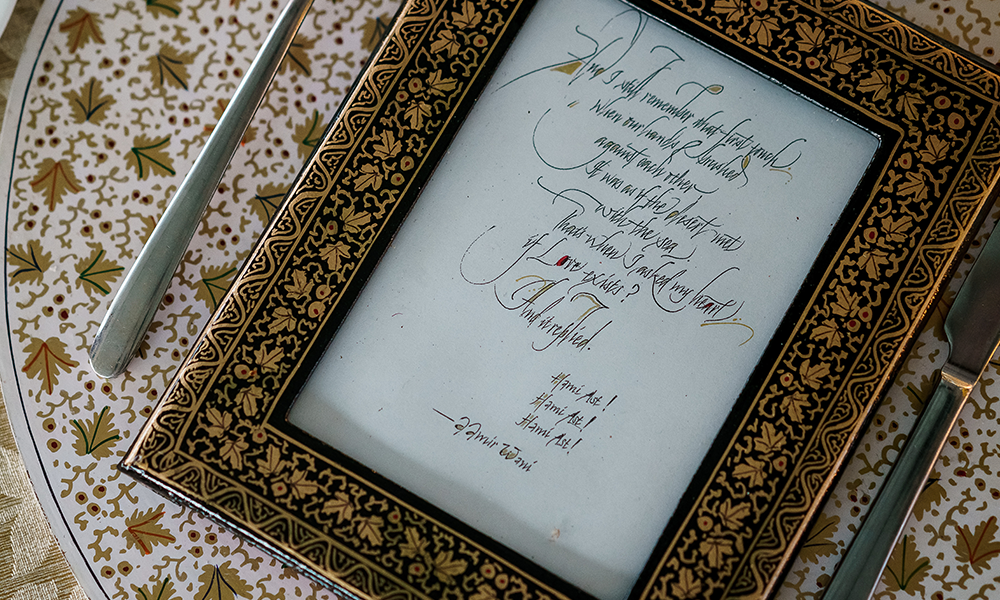 And I will remember that first touch
When our hands brushed
against each other
It was as if the desert met
with the sea
That's when I asked my heart
if Love exists?
And it replied.
Hami Ast!
Hami Ast!
Hami Ast!